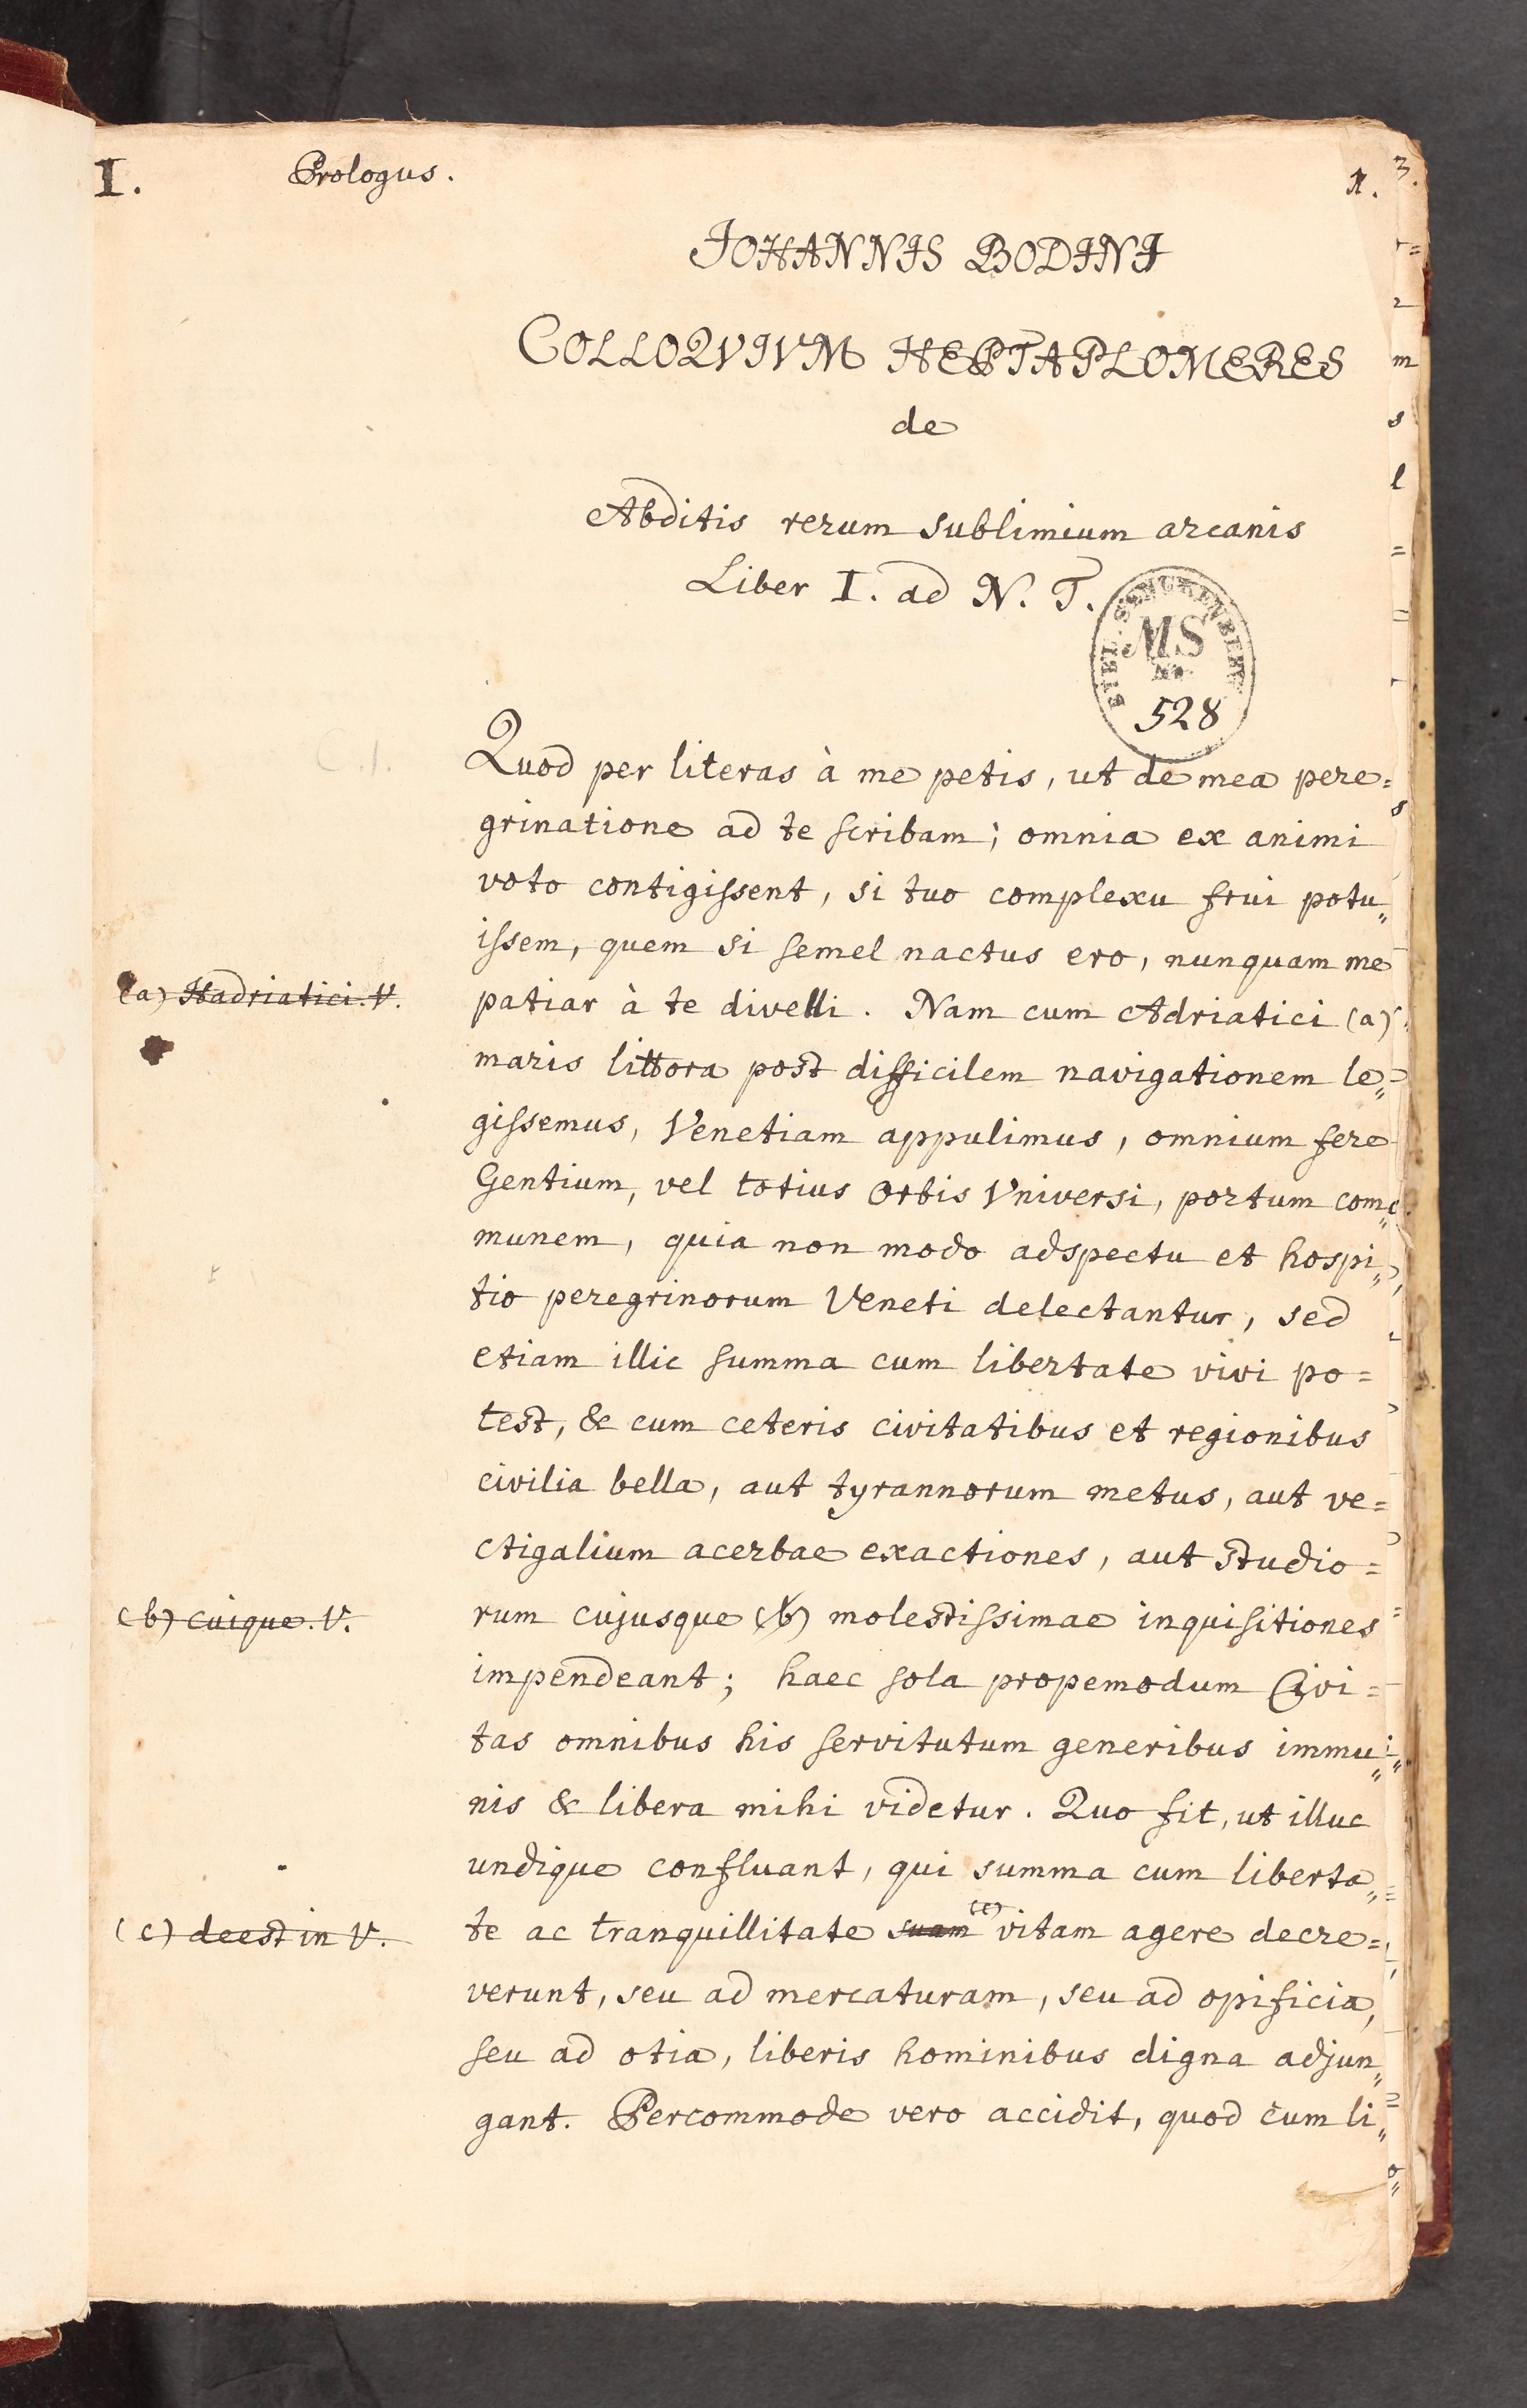 I. Prologus. 1.
JOHANNIS BODINI
COLLOQVIVM HEPTAPLOMERES
de
Abditis rerum sublimium arcanis
Liber I. ad N. T.
MS
528
C. I.
Quod per literas à me petis, ut de mea pere=
grinatione ad te scribam; omnia ex animi
voto contigissent, si tuo complexu frui potu„
issem, quem si semel nactus ero, nunquam me
(a) Hadriatici. V.
patiar à te divelli. Nam cum Adriatici (a)
maris littora post difficilem navigationem le„
gissemus, Venetiam appulimus, omnium fere
Gentium, vel totius Orbis Vniversi, portum com„
munem, quia non modo adspectu et hospi„
tio peregrinorum Veneti delectantur, sed
etiam illic summa cum libertate vivi po=
test, & cum ceteris civitatibus et regionibus
civilia bella, aut tyrannorum metus, aut ve=
ctigalium acerbae exactiones, aut studio=
(b) cuique. V.
rum cujusque (b) molestissimae inquisitiones
impendeant; haec sola propemodum Civi=
tas omnibus his servitutum generibus immu„
nis & libera mihi videtur. Quo fit, ut illuc
undique confluant, qui summa cum liberta„
(c) deest in V.
te ac tranquillitate suam (c) vitam agere decre=
verunt, seu ad mercaturam, seu ad opificia,
seu ad otia, liberis hominibus digna adjun„
gant. Percommode vero accidit, quod cum li„